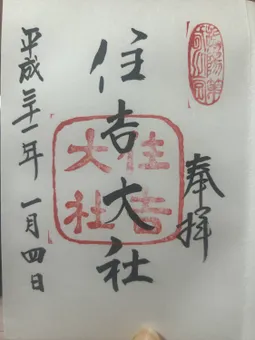 奉拝
住吉大社
住吉
大社
平成三十一年 一月四日